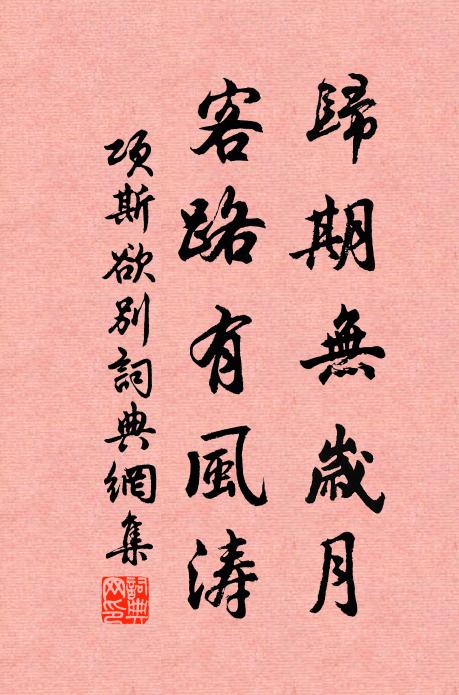 歸期無歲月
客路有風濤
項斯欲別詞典網集
詞典網印